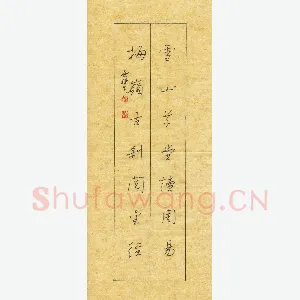 雪山草堂讀周易
梅嶺古刹閱金經
Shufawang.CN